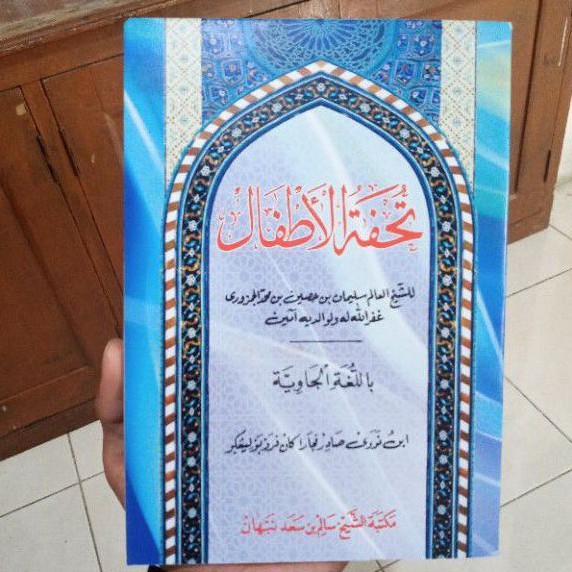 تُحْفَةُ الْأَطْفَالْ
للشيخ العالم سليمان بن حسين بن محمد الجزورى
غفر الله له ولوالديه آمين
باللُّغَةِ الْجَاوِيَّة
ابن نووى صادر فجاراكان فروبوليڠكو
مكتبة الشيخ سالم بن سعد نبهان